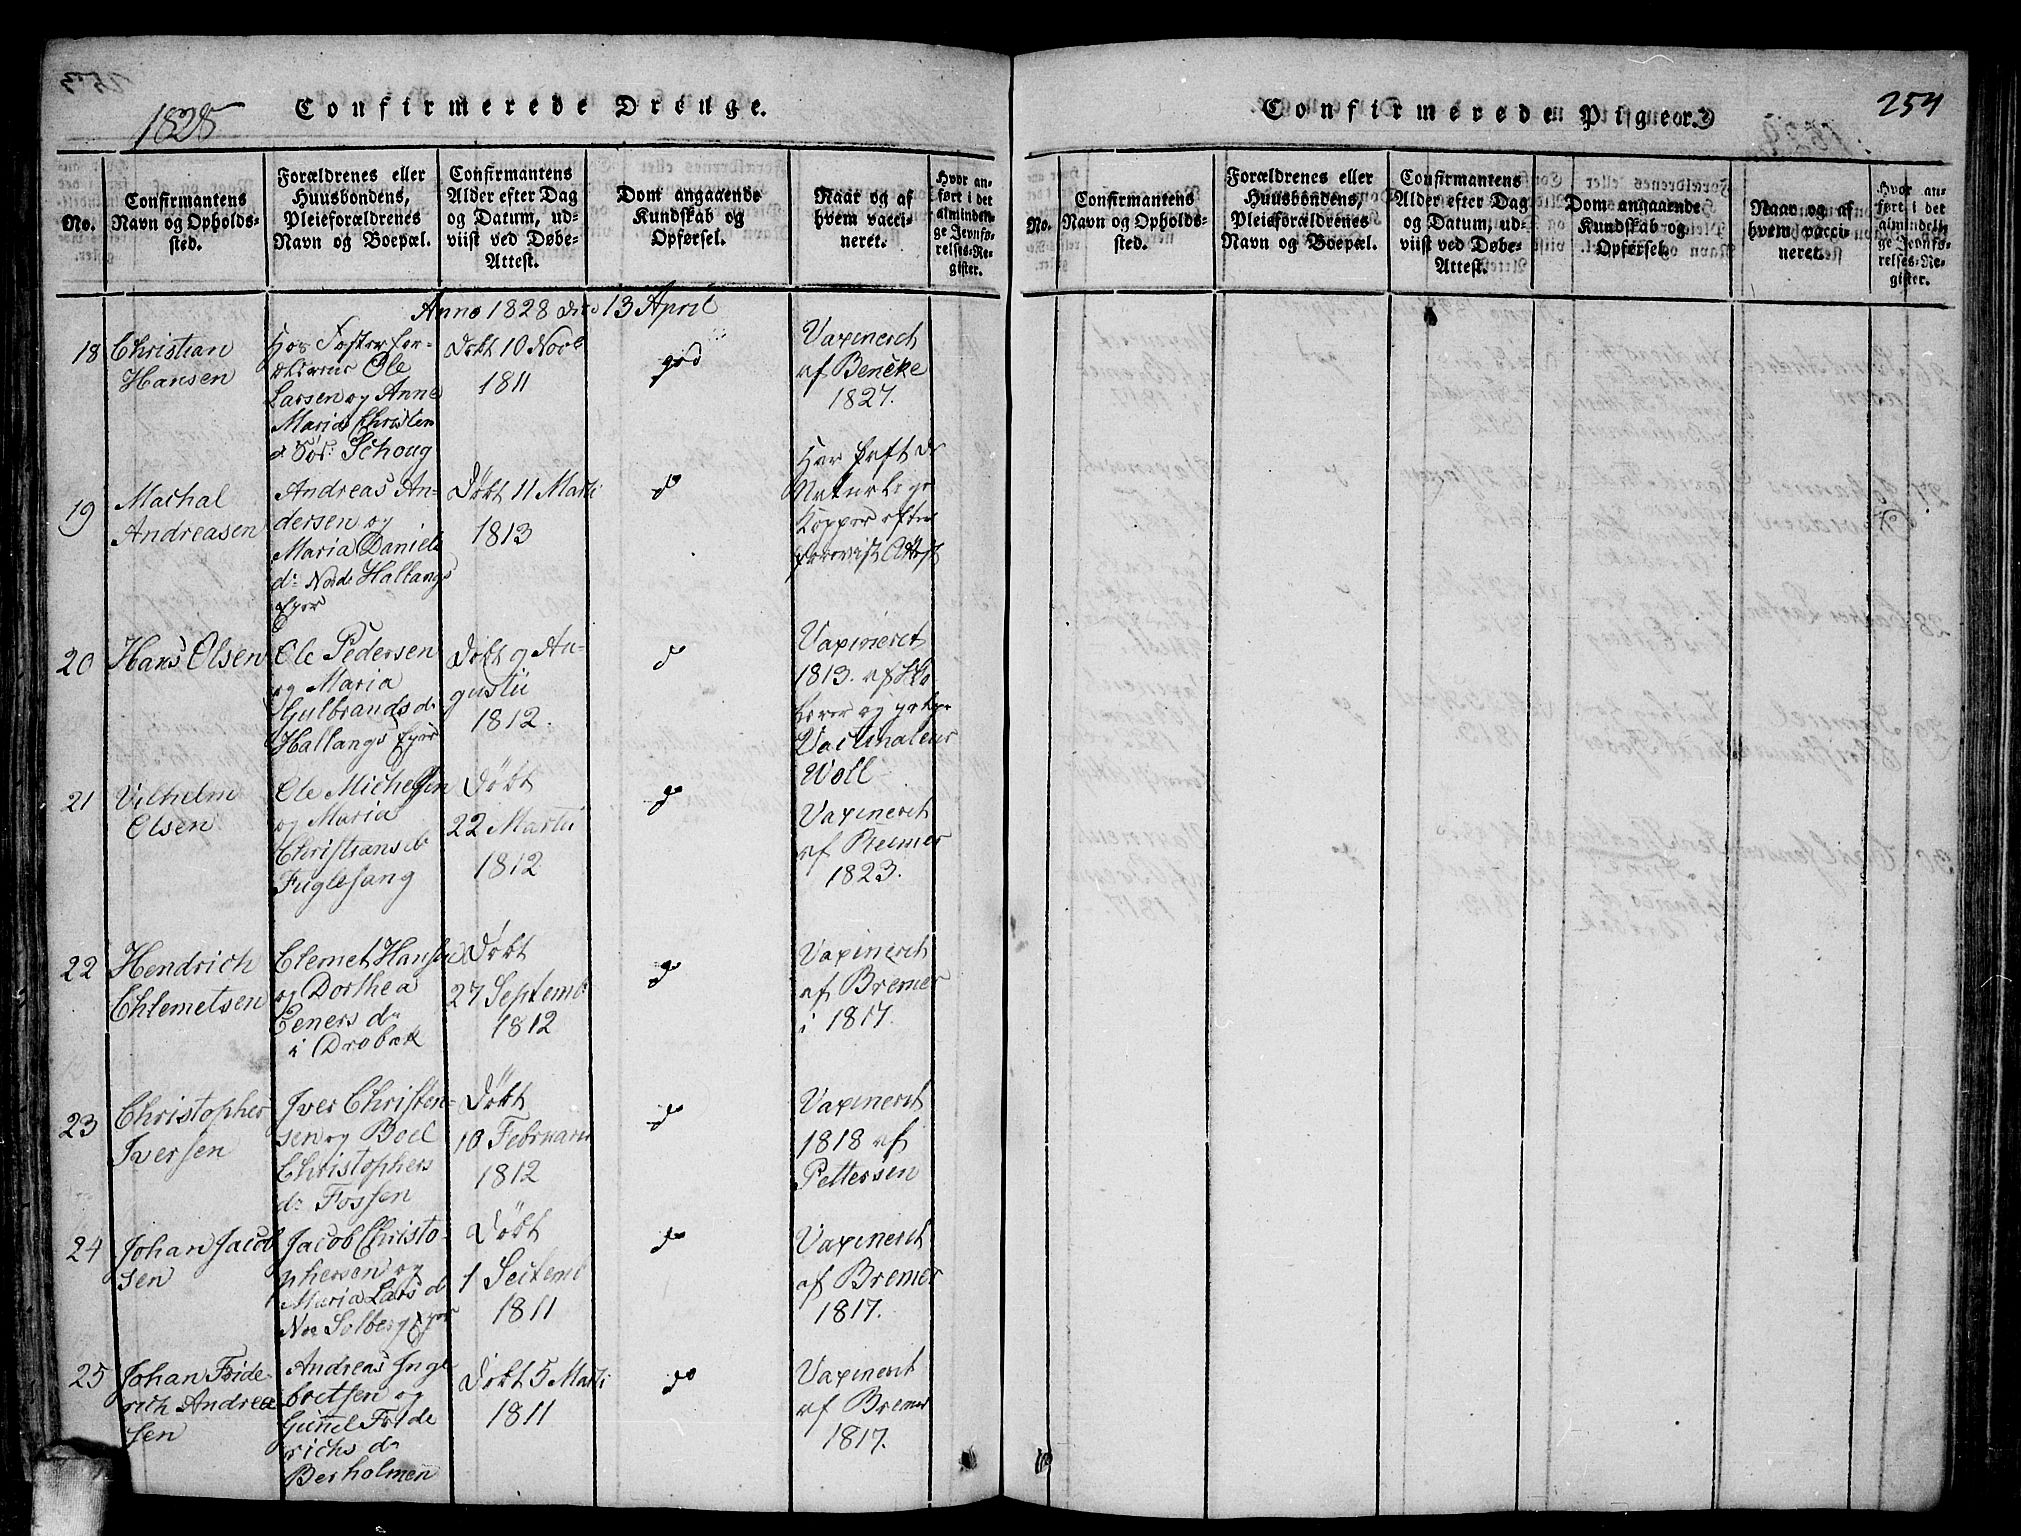 1828
Confirmerede Drenge.
No.
Confirmantens
Navn og Opholds-
sted.
Forældrenes eller
Huusbondens,
Pleieforældrenes
Navn og Boepæl.
Confirmantens
Alder efter Dag
og Datum, ud-
viist ved Døbe-
Attest.
Dom angaaende
Kundskab og
Opførsel.
Naar og af
hvem vacci-
neret.
Hvor an-
ført i det
almindeli-
ge Jevnfø-
relses-Re-
gister.
Anno 1828 den 13 April
18
Christian
Hansen
Hos Foster for-
Ole
Larsen og Anne
Maria Christen
d: Sdr: Schoug
Døbt 10 Novb
1811
god
Vaxineret
af Beneke
1827.
19
Machal
Andreasen
Andreas An-
dersen og
Maria Daniels
d: Nord Hallangs
Eyer
Døbt 11 Marti
1813
do
Har haft de
Naturlige
Kopper efter
foreviist Attest
20
Hans Olsen
Ole Pedersen
og Maria
Gulbrands d:
Hallangs Eyer
Døbt 9 Au-
gustii
1812.
do
Vaxineret
1813. af
og
Vactinateur
Woll
21
Vilhelm
Olsen
Ole Michelsen
og Maria
Christians d:
Fuglesang
Døbt
22 Martii
1812
do
Vaxineret
af Bremer
1823.
22
Hendrich
Chlemetsen
Clemet Hansen
og Dorthea
Eeners d:
i Drøbak
Døbt
27 Septemb:
1812
do
Vaxineret
af Bremer
i 1817.
23
Christopher
Iversen
Iver Christen-
sen og Boel
Christophers
d: Fossen
Døbt
10 Februarii
1812
do
Vaxineret
1818 af
Pettersen
24
Johan Jacob
sen
Jacob Christo-
phersen og
Maria Lars d:
Nor Solberg Eyer
Døbt
1 Seitemb
1811
do
Vaxineret
af Bremer
1817.
25
Johan Fride-
rich Andrea
sen
Andreas Inge
bretsen og
Gunnel Fride
richs d:
Berholmen
Døbt 5 Marti
1811
do
Vaxineret
af Bremer
1817.
Confirmerede Pigeor.
254
No.
Confirmantens
Navn og Opholds-
sted.
Forældrenes eller
Huusbondens,
Pleieforældrenes
Navn og Boepæl.
Confirmantens
Alder efter Dag
og Datum, ud-
viist ved Døbe-
Attest.
Dom angaaende
Kundskab og
Opførsel.
Naar og af
hvem vacci-
neret.
Hvor an-
ført i det
almindeli-
ge Jevnfø-
relses-Re-
gister.